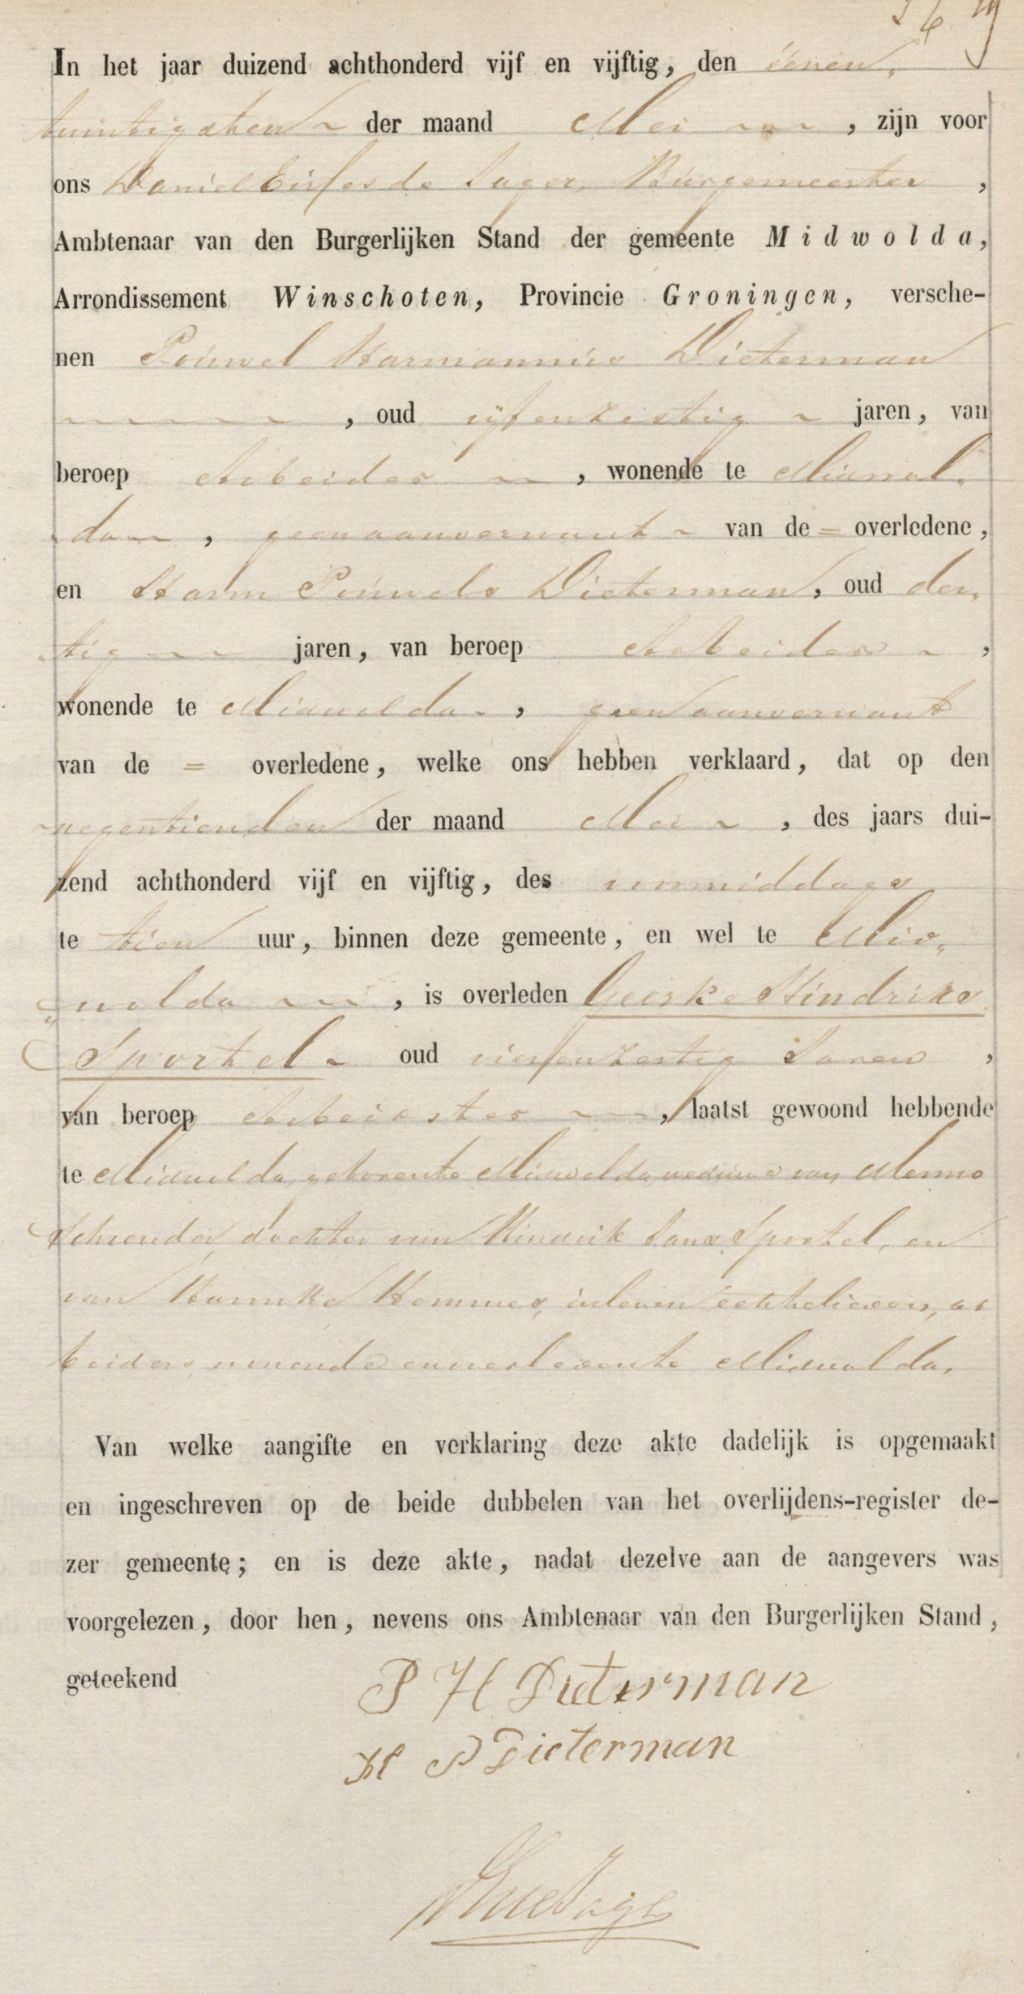 In het jaar duizend achthonderd vijf en vijftig, den eenen,
twintigsten der maand Mei, zijn voor
ons Daniel de Sager, Burgemeester,
Ambtenaar van den Burgerlijken Stand der gemeente Midwolda,
Arrondissement Winschoten, Provincie Groningen, versche-
nen Pouwel Harmannus Dieterman
, oud vijfenzestig jaren, van
beroep Arbeider, wonende te Midwol-
da, geen aanverwant van de = overledene,
en Harm Pouwels Dieterman, oud der,
tig jaren, van beroep Arbeider,
wonende te Midwolda, geen aanverwant
van de = overledene, welke ons hebben verklaard, dat op den
negentienden der maand Mei, des jaars dui-
zend achthonderd vijf en vijftig, des voormiddags
te tien uur, binnen deze gemeente, en wel te Mid„
„wolda, is overleden Geeske Hindriks
Sportel oud vierenzestig Jaren,
van beroep Arbeidster, laatst gewoond hebbende
te Midwolda, geboren te Midwolda weduwe van Menno
Schreuder, dochter van Hindrik Jans Sportel, en
van Hemmes, in leven echtelieden, ar
beiders wonende en overleden te Midwolda.
Van welke aangifte en verklaring deze akte dadelijk is opgemaakt
en ingeschreven op de beide dubbelen van het overlijdens-register de-
zer gemeente; en is deze akte, nadat dezelve aan de aangevers was
voorgelezen, door hen, nevens ons Ambtenaar van den Burgerlijken Stand,
geteekend P H Dieterman
H P Dieterman